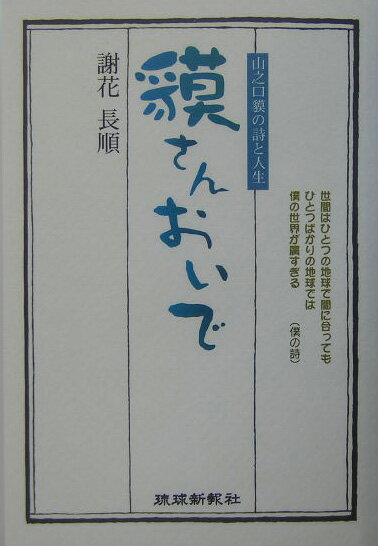 世間はひとつの地球で間に合っても
ひとつばかりの地球では
僕の世界が広すぎる
(僕の詩)
山之口貘の詩と人生
貘さんおいで
謝花 長順
琉球新報社